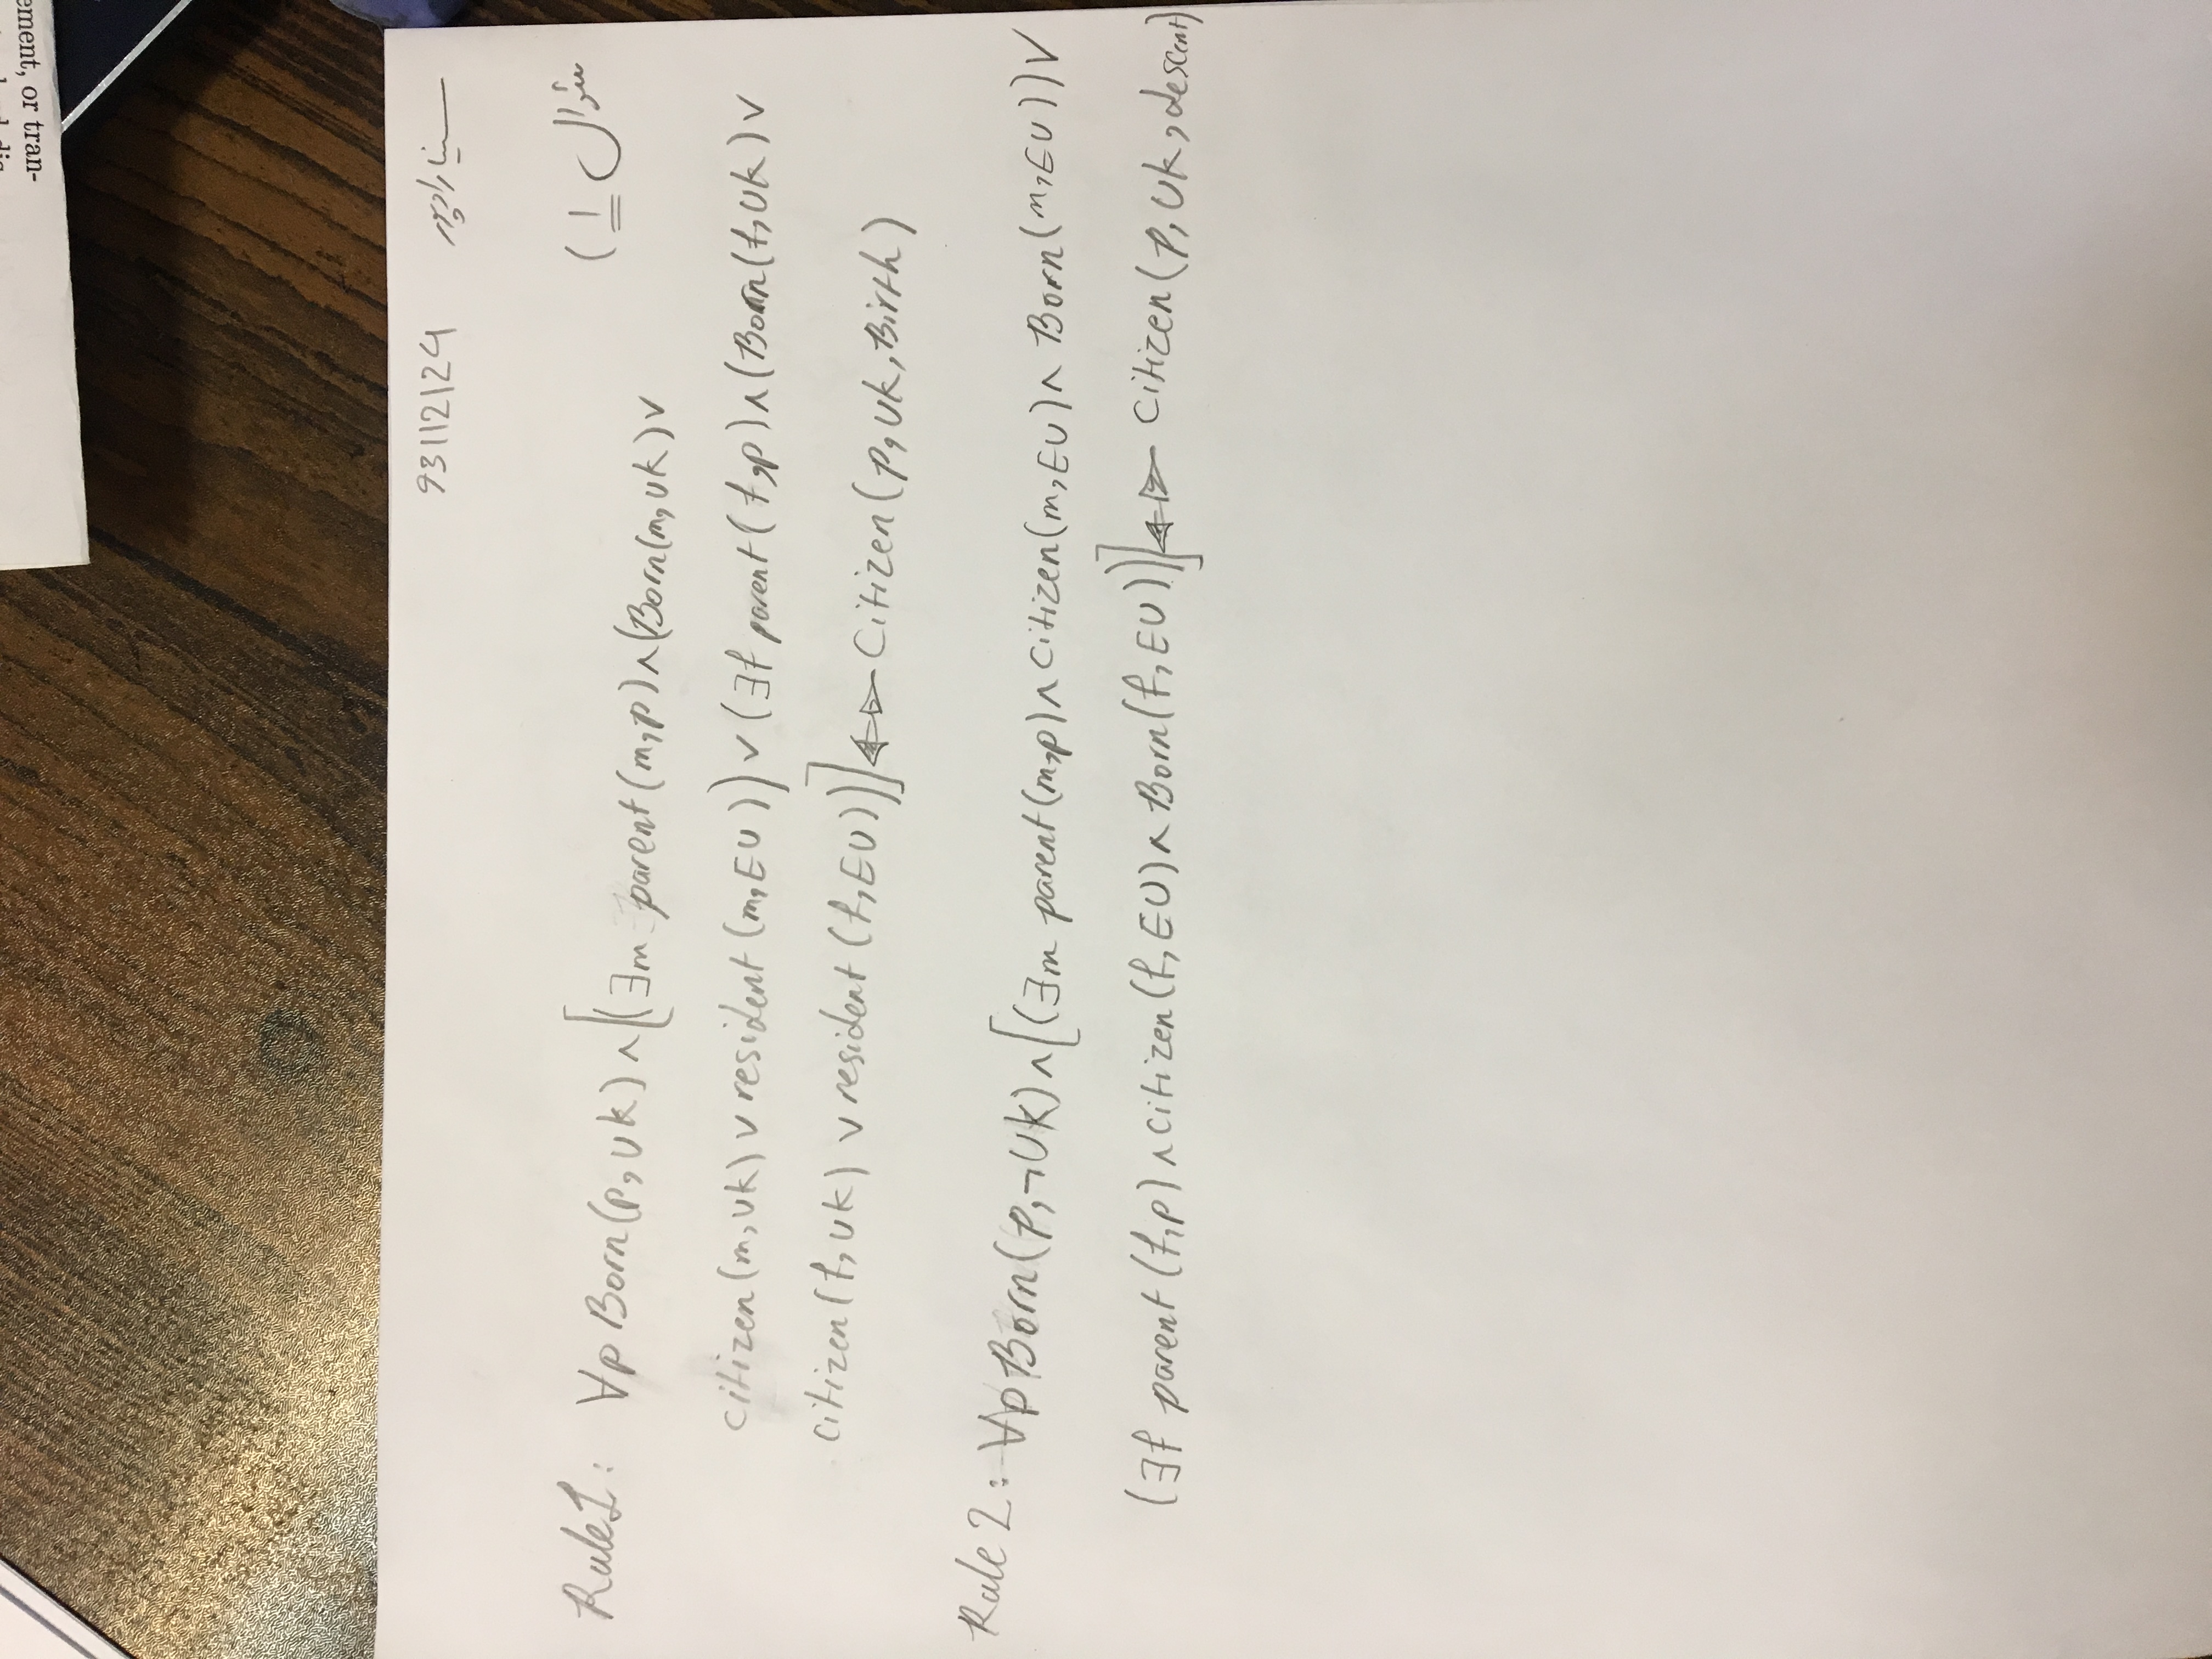 ement, or tran-
93112124 سینا رادپور
سؤال 1)
Rule1: ∀p Born(p, Uk) ∧ [(∃m parent(m,p) ∧ (Born(m, Uk) ∨
citizen(m, Uk) ∨ resident(m, EU)) ∨ (∃f parent(f,p) ∧ (Born(f, Uk) ∨
citizen(f, Uk) ∨ resident(f, EU))] ⟺ Citizen(p, Uk, Birth)
Rule 2: ∀p Born(p, ¬Uk) ∧ [(∃m parent(m,p) ∧ Citizen(m, EU) ∧ Born(m, EU)) ∨
(∃f parent(f,p) ∧ Citizen(f, EU) ∧ Born(f, EU))] ⟺ Citizen(p, Uk, descent)